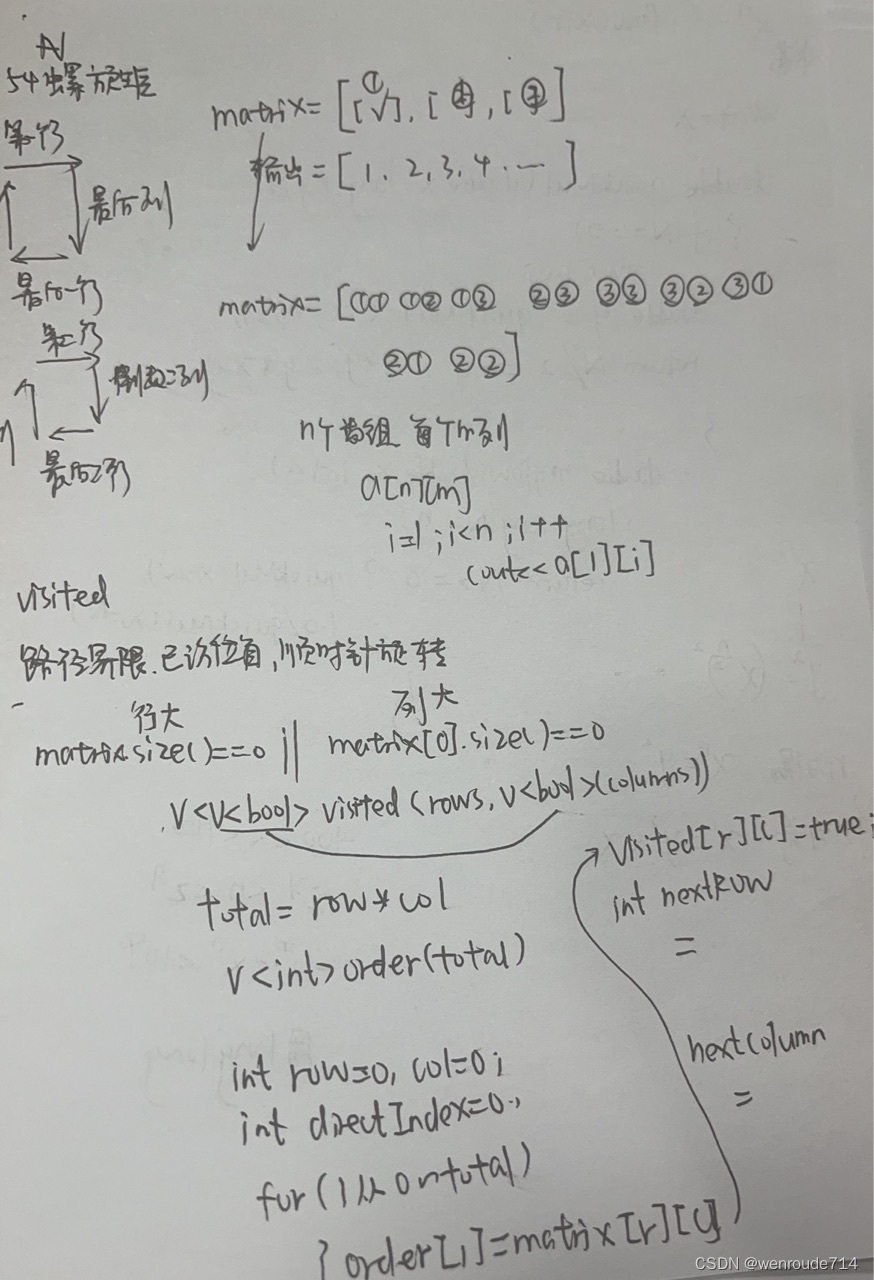 54 螺旋矩
第一行
最后列
最后一行
第二行
倒数二列
最后2行
matrix= [[ ① ], [ ② ], [ ③ ]]
输出 = [ 1, 2, 3, 4 ... ]
matrix= [①① ①② ①③ ②③ ③③ ③② ③①
②① ②②]
n个数组 每个m列
a[n][m]
i=1 ; i<n ; i++
cout<< a[1][i]
visited
路径界限.已访位自,顺时针旋转
行大
列大
matrix.size()==0 || matrix[0].size()==0
V<V<bool> visited (rows, V<bool>(columns))
total= row*col
V<int> order(total)
int row=0, col=0;
int directIndex=0;
for (i从0ntotal)
{ order[i]=matrix[r][c]
visited[r][c]=true;
int nextRow
=
nextcolumn
=
CSDN @wenroude714